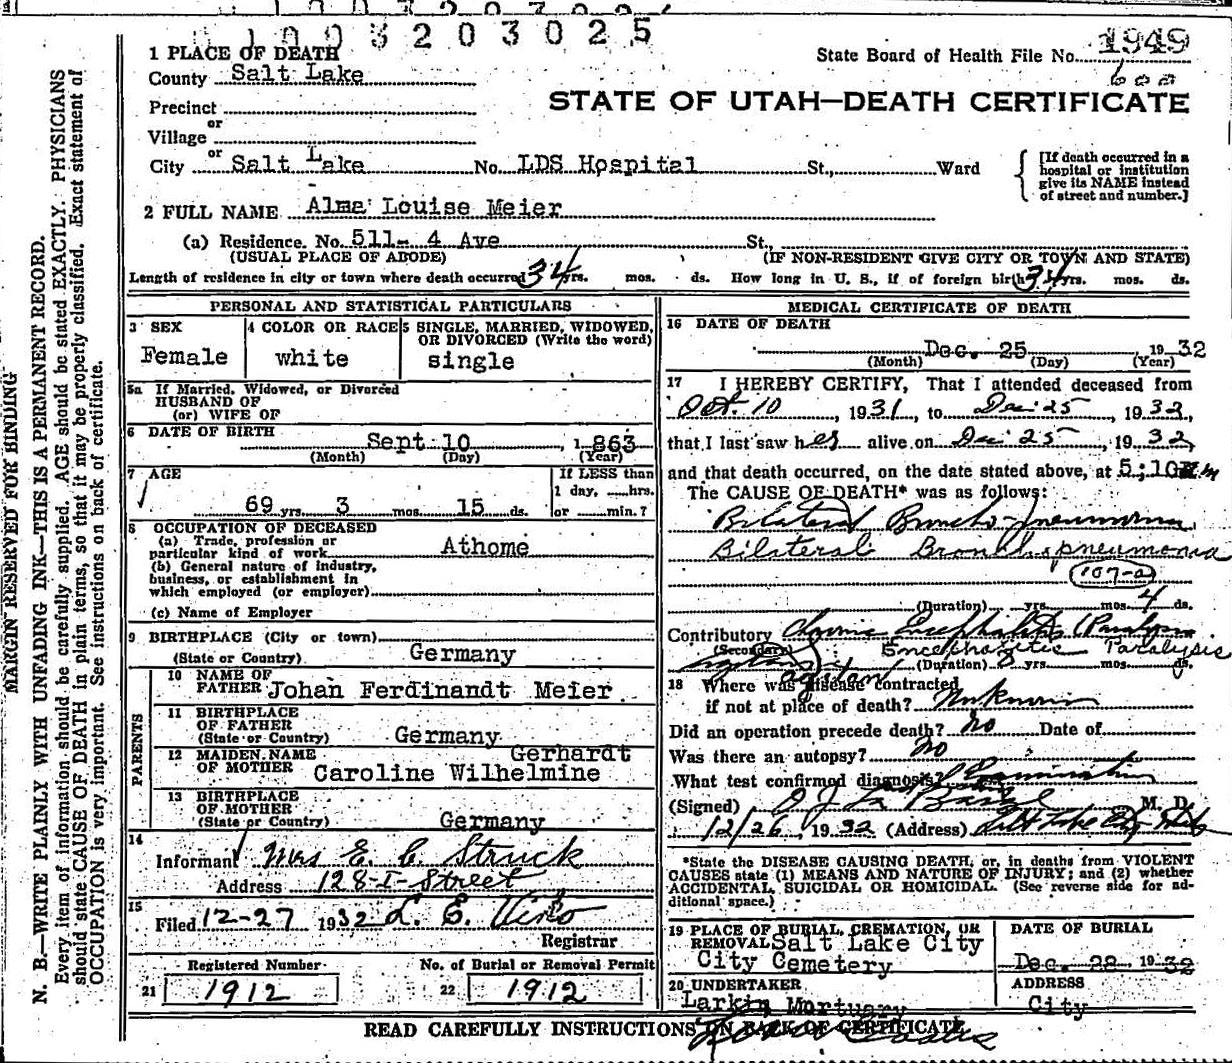 1003203025
1 PLACE OF DEATH
State Board of Health File No. 1949
County Salt Lake
600
Precinct
STATE OF UTAH—DEATH CERTIFICATE
or
Village
or
City Salt Lake No. LDS Hospital St., Ward
[If death occurred in a hospital or institution give its NAME instead of street and number.]
2 FULL NAME Alma Louise Meier
(a) Residence. No. 511- 4 Ave St.,
(USUAL PLACE OF ABODE) (IF NON-RESIDENT GIVE CITY OR TOWN AND STATE)
Length of residence in city or town where death occurred 34 yrs. mos. ds. How long in U. S., if of foreign birth 34 yrs. mos. ds.
PERSONAL AND STATISTICAL PARTICULARS
3 SEX
Female
4 COLOR OR RACE
white
5 SINGLE, MARRIED, WIDOWED,
OR DIVORCED (Write the word)
single
5a If Married, Widowed, or Divorced
HUSBAND OF
(or) WIFE OF
6 DATE OF BIRTH
Sept 10 1863
(Month) (Day) (Year)
7 AGE
69 yrs. 3 mos. 15 ds.
If LESS than
1 day, ......hrs.
or ......min.?
8 OCCUPATION OF DECEASED
(a) Trade, profession or
particular kind of work Athome
(b) General nature of industry,
business, or establishment in
which employed (or employer)
(c) Name of Employer
9 BIRTHPLACE (City or town)
(State or Country) Germany
PARENTS
10 NAME OF
FATHER Johan Ferdinandt Meier
11 BIRTHPLACE
OF FATHER
(State or Country) Germany
12 MAIDEN NAME Gerhardt
OF MOTHER Caroline Wilhelmine
13 BIRTHPLACE
OF MOTHER
(State or Country) Germany
14
Informant Mrs E. C. Struck
Address 128-I-Street
15
Filed 12-27 1932 L. E. Viko
Registrar
Registered Number No. of Burial or Removal Permit
21 1912 22 1912
MEDICAL CERTIFICATE OF DEATH
16 DATE OF DEATH
Dec. 25 1932
(Month) (Day) (Year)
17 I HEREBY CERTIFY, That I attended deceased from
Oct. 10, 1931, to Dec 25, 1932,
that I last saw her alive on Dec 25, 1932,
and that death occurred, on the date stated above, at 5:10 m
The CAUSE OF DEATH* was as follows:
Bilateral Broncho-pneumonia
Bilateral Bronchopneumonia
107-a
(Duration) yrs. mos. 4 ds.
Contributory Chronic Encephalitis (Paralysis
(Secondary) Encephalitic Paralysis
agitans) agitan (Duration) 8 yrs. mos. ds.
18 Where was disease contracted
if not at place of death? Unknown
Did an operation precede death? No Date of
Was there an autopsy? No
What test confirmed diagnosis? Examination
(Signed) M. D.
12/26, 1932 (Address) Salt Lake City Utah
*State the DISEASE CAUSING DEATH, or, in deaths from VIOLENT
CAUSES state (1) MEANS AND NATURE OF INJURY; and (2) whether
ACCIDENTAL, SUICIDAL OR HOMICIDAL. (See reverse side for ad-
ditional space.)
19 PLACE OF BURIAL, CREMATION, OR
REMOVAL Salt Lake City
City Cemetery
DATE OF BURIAL
Dec. 28 1932
20 UNDERTAKER
Larkin Mortuary
ADDRESS
City
READ CAREFULLY INSTRUCTIONS ON BACK OF CERTIFICATE
MARGIN RESERVED FOR BINDING
N. B.—WRITE PLAINLY WITH UNFADING INK—THIS IS A PERMANENT RECORD.
Every item of information should be carefully supplied. AGE should be stated EXACTLY. PHYSICIANS
should state CAUSE OF DEATH in plain terms, so that it may be properly classified. Exact statement of
OCCUPATION is very important. See instructions on back of certificate.